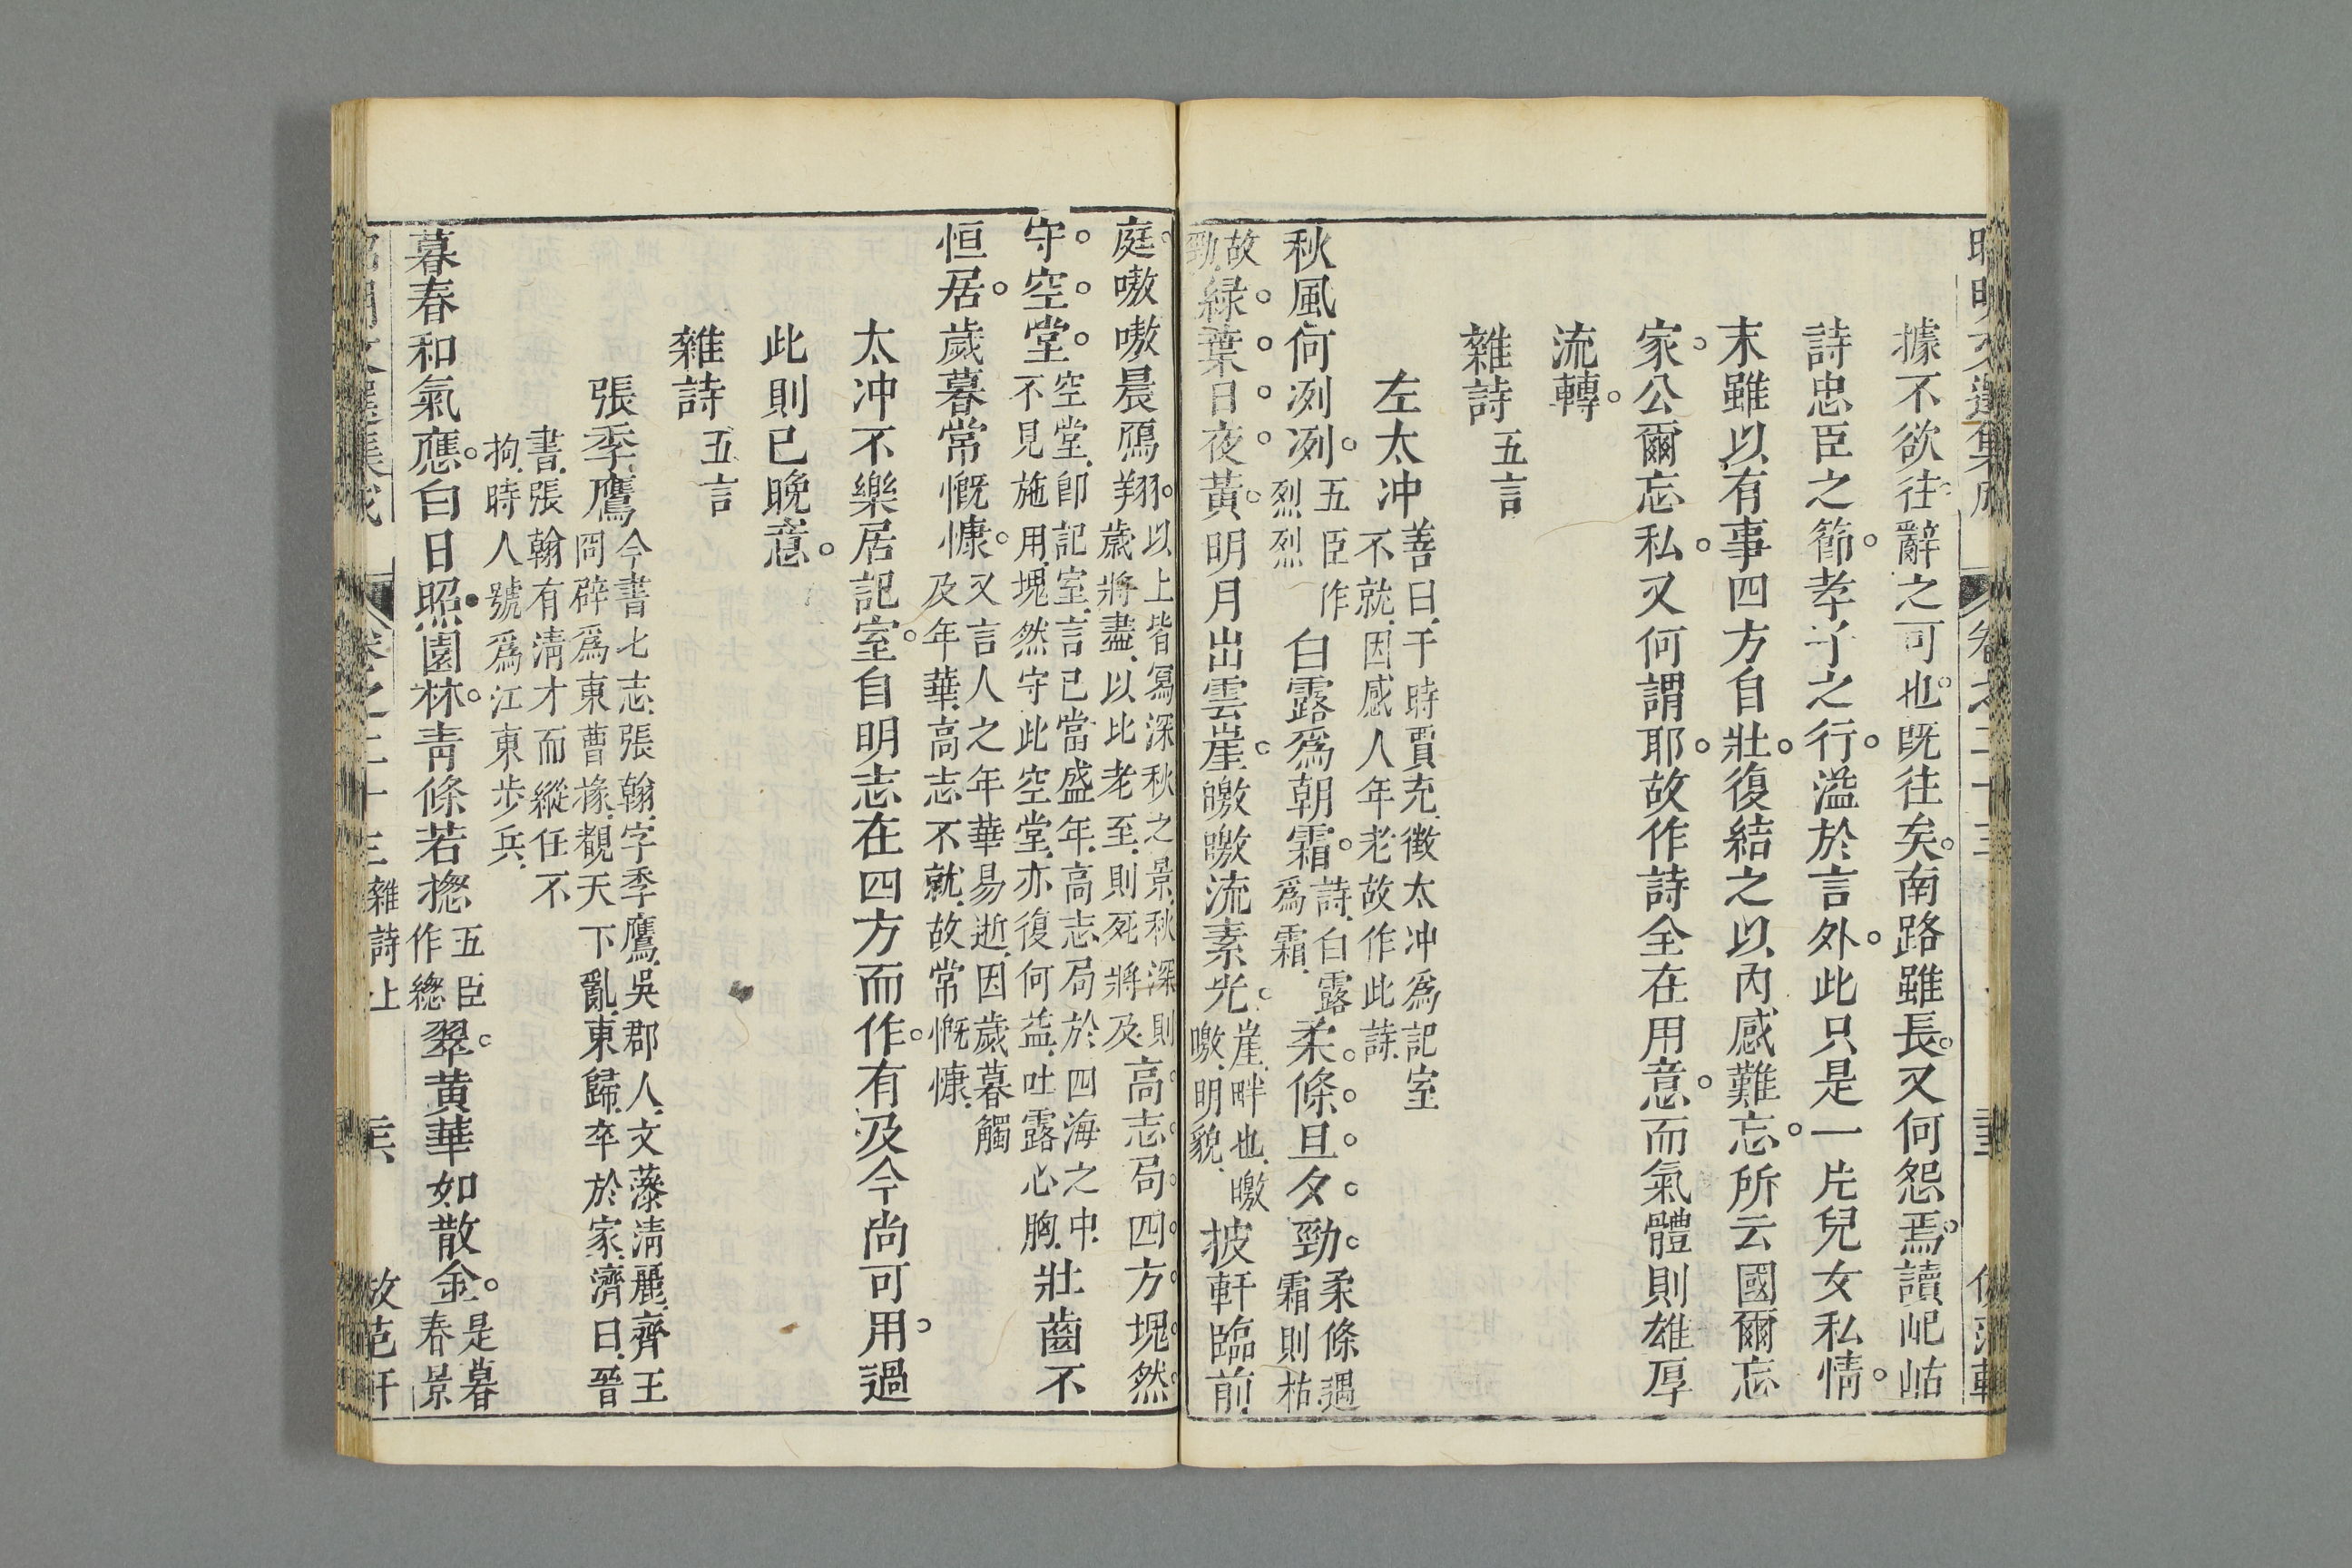 據不欲往辭之可也既往矣南路雖長又何怨焉讀屺岵
詩忠臣之節孝子之行溢於言外此只是一片兒女私情
末雖以有事四方自壯復結之以內感難忘所云國爾忘
家公爾忘私又何謂耶故作詩全在用意而氣體則雄厚
流轉
雜詩五言
左太冲善曰于時賈充徵太冲爲記室
不就因感人年老故作此詩
秋風何冽冽五臣作
烈烈
白露爲朝霜詩白露
爲霜
柔條旦夕勁柔條遇
霜則枯
故
勁
緑葉日夜黃明月出雲崖皦皦流素光崖畔也皦
皦明貌
披軒臨前
庭嗷嗷晨鴈翔以上皆寫深秋之景秋深則
歲將盡以比老至則死將及
高志局四方塊然
守空堂空堂卽記室言已當盛年高志局於四海之中
不見施用塊然守此空堂亦復何益吐露心胸
壯齒不
恒居歲暮常慨慷又言人之年華易逝因歲暮觸
及年華高志不就故常慨慷
太冲不樂居記室自明志在四方而作有及今尚可用過
此則已晚意
雜詩五言
張季鷹今書七志張翰字季鷹吳郡人文藻清麗齊王
冏辟爲東曹掾覩天下亂東歸卒於家濟曰晉
書張翰有清才而縱任不
拘時人號爲江東步兵
暮春和氣應白日照園林青條若摠五臣
作總
翠黃華如散金是暮
春景
卷之二十三 雜詩上